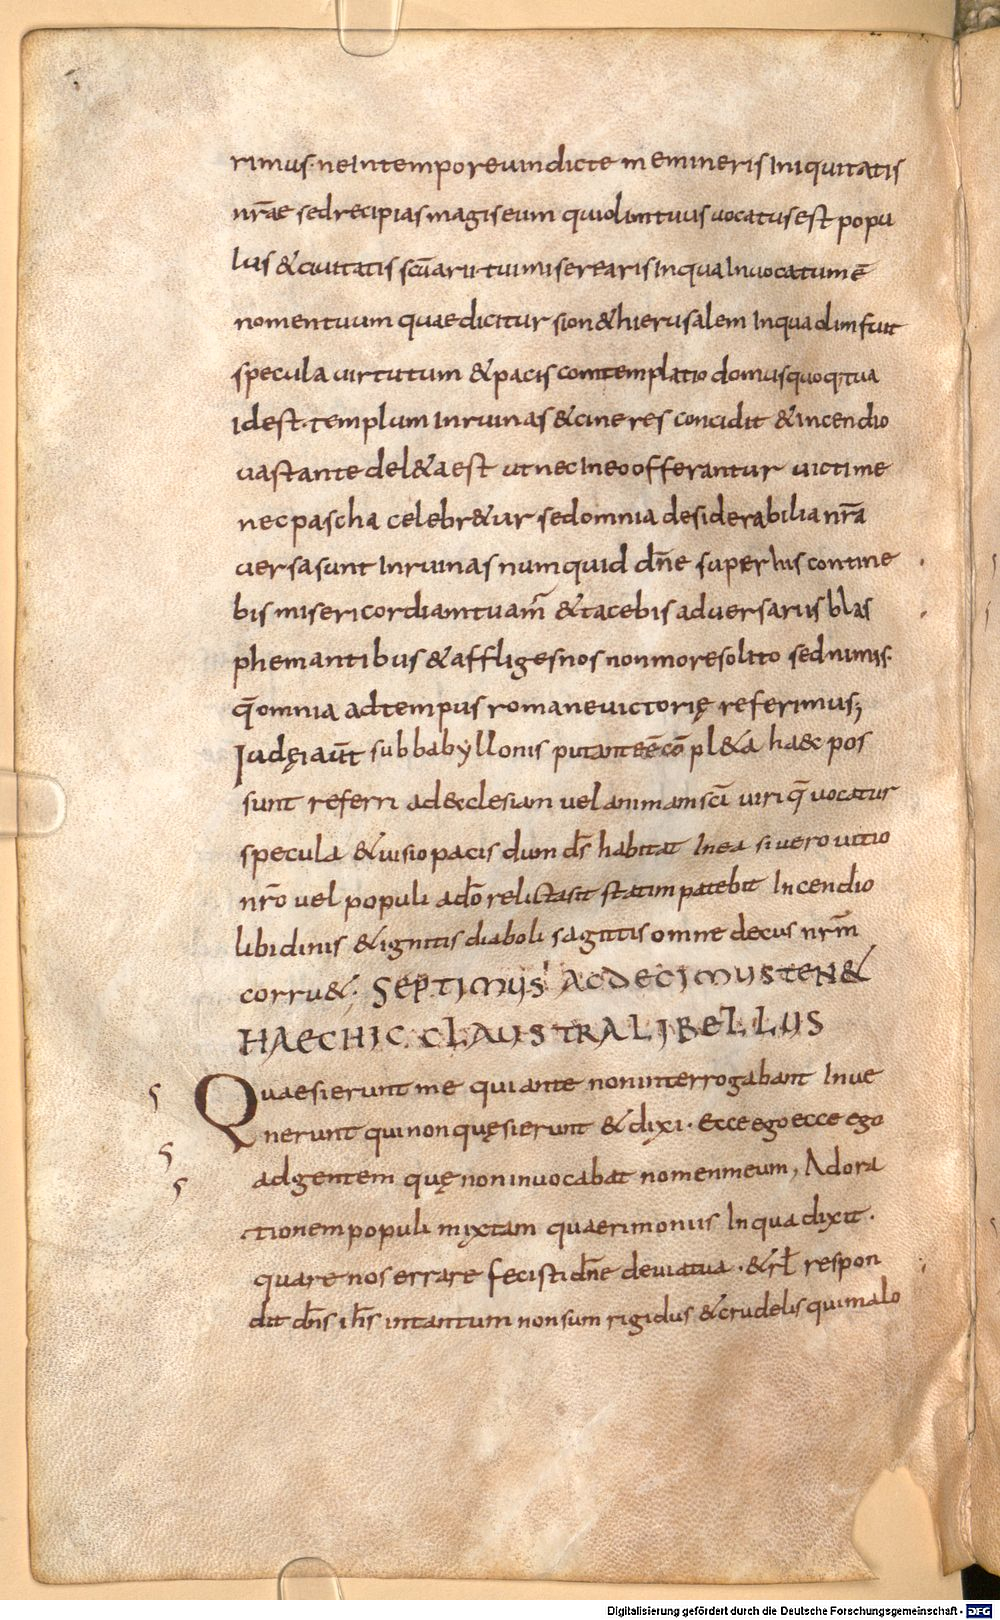 rimus· ne in tempore uindicte memineris iniquitatis
nr̄ae sed recipias magis eum qui olim tuus uocatus est popu
lus & ciuitatis sc̄uarii tui miserearis in qua inuocatum ē
nomen tuum quae dicitur sion & hierusalem in qua dim fuit
specula uirtutum & pacis comtemplatio domus quoq; tua
id est· templum in ruinas & cineres concidit & incendio
uastante del&a est ut nec in eo offerantur uictime
nec pascha celebr&ur sed omnia desiderabilia nr̄a
uersa sunt in ruinas numquid dn̄e super his contine
bis misericordiam tuam̄ & tacebis aduersariis blas
phemantibus & affliges nos non more solito sed nimis·
q̄ omnia ad tempus romane uictorię referimus;
Iudęi aūt sub babyllonis putant eē cō pl&a haec pos
sunt referri ad ecclesiam uel animam sc̄i uiri q̄ uocatur
specula & uisio pacis dum d̄s habitat in ea si uero uitio
nr̄o uel populi a dō relicta sit statim patebit incendio
libidinis & ignitis diaboli sagittis omne decus nr̄m
corru&; SEPTIMUS AC DECIMUS TEN&
HAEC HIC CLAUSTRA LIBELLUS
Quaesierunt me qui ante non interrogabant inue
nerunt qui non quęsierunt & dixi· ecce ego ecce ego
ad gentem quę non inuocabat nomen meum, Adora
tionem populi mixtam quaerimoniis in qua dixit·
quare nos errare fecisti dn̄e de uia tua· & rł respon
dit dn̄s ih̄s in tantum non sum rigidus & crudelis qui malo
Digitalisierung gefördert durch die Deutsche Forschungsgemeinschaft - DFG